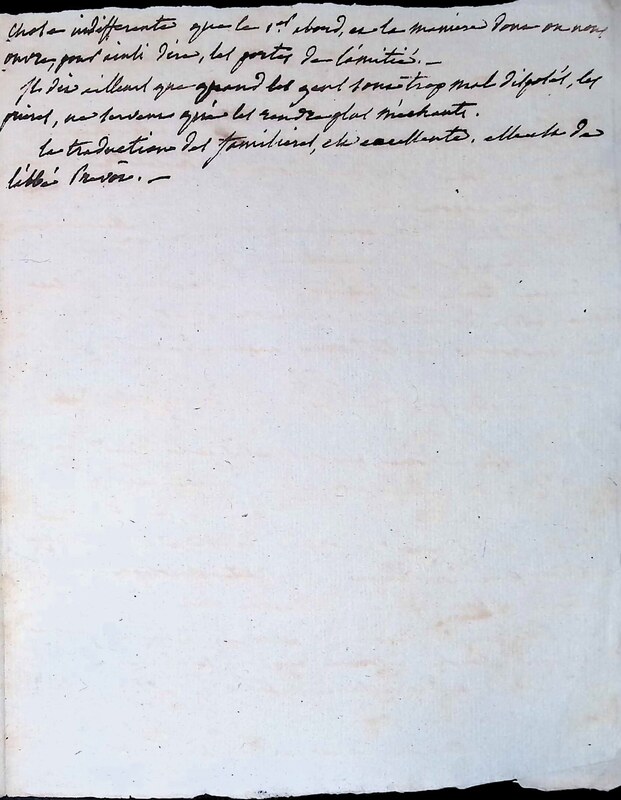 chose indifferente que le 1er abord, et la maniere dont on nous
ouvre, pour ainsi dire, les portes de l'amitié. —
Il dit ailleurs que quand les gens sont trop mal disposés, les
prieres, ne servent qu'à les rendre plus méchants.
la traduction des familieres, est excellente. elle est de
l'abbé Prevôt. —